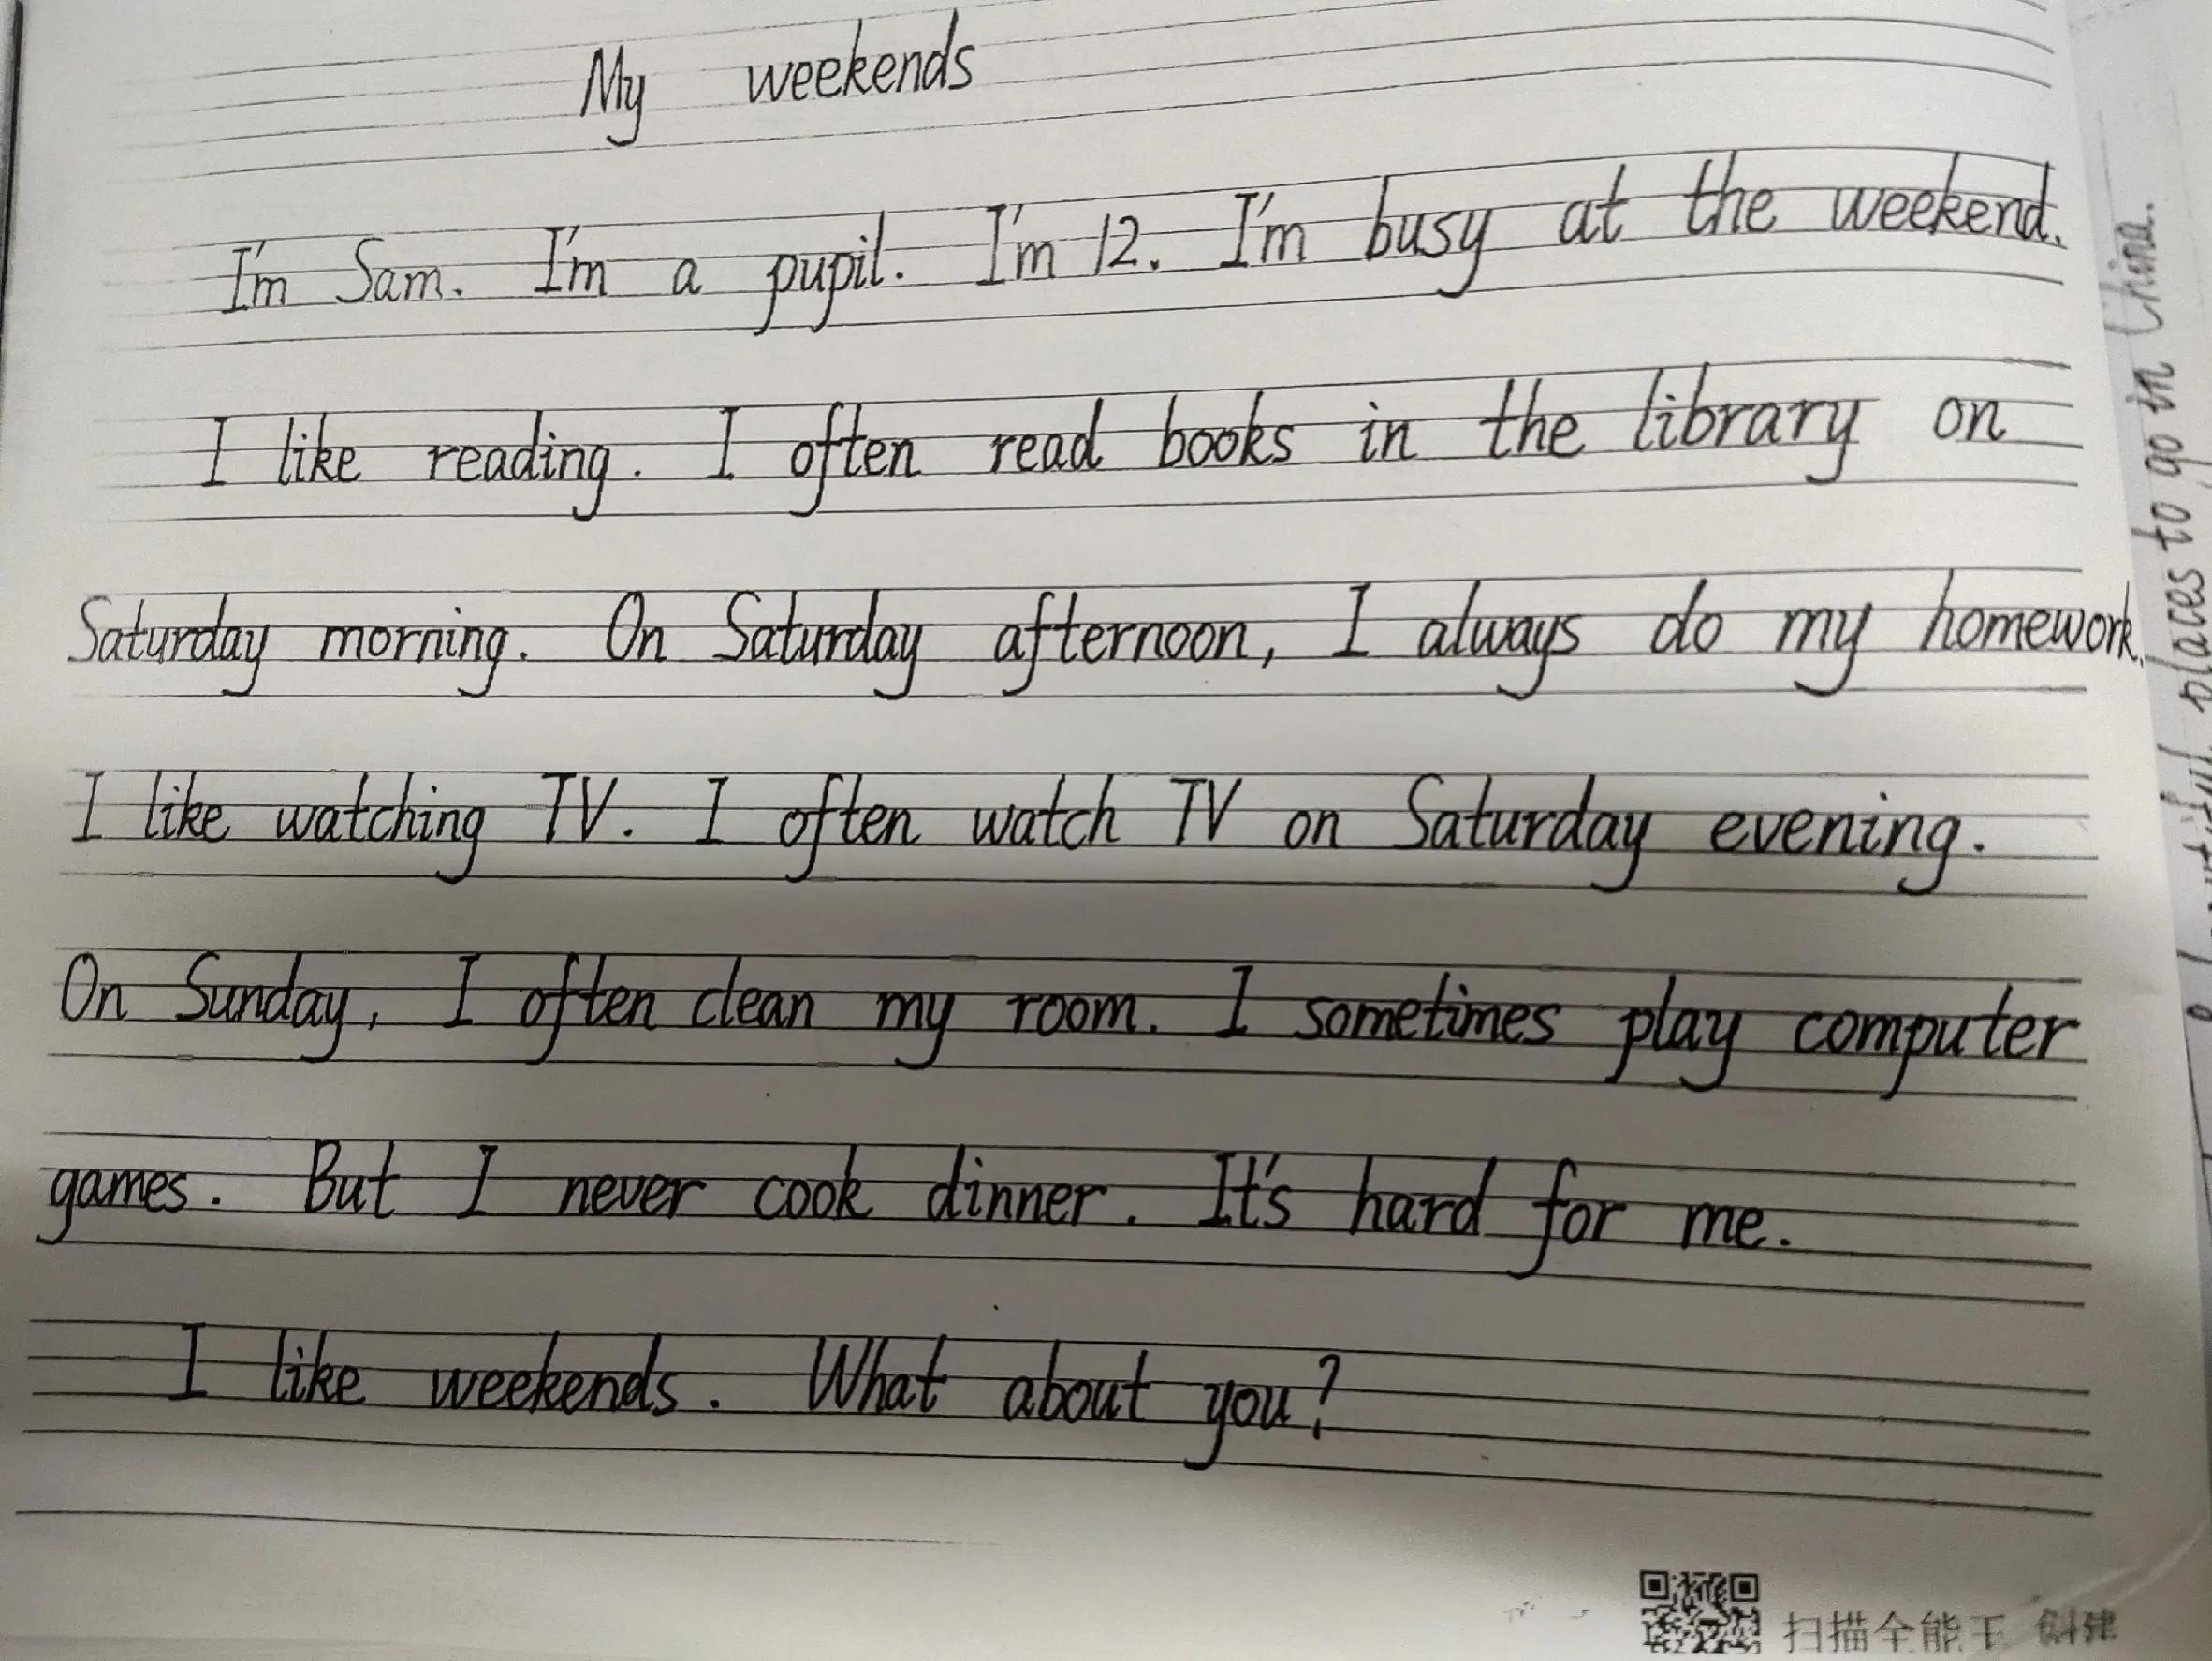 My weekends
I'm Sam. I'm a pupil. I'm 12. I'm busy at the weekend.
I like reading. I often read books in the library on
Saturday morning. On Saturday afternoon, I always do my homework.
I like watching TV. I often watch TV on Saturday evening.
On Sunday, I often clean my room. I sometimes play computer
games. But I never cook dinner. It's hard for me.
I like weekends. What about you?
places to go in China.
扫描全能王 创建